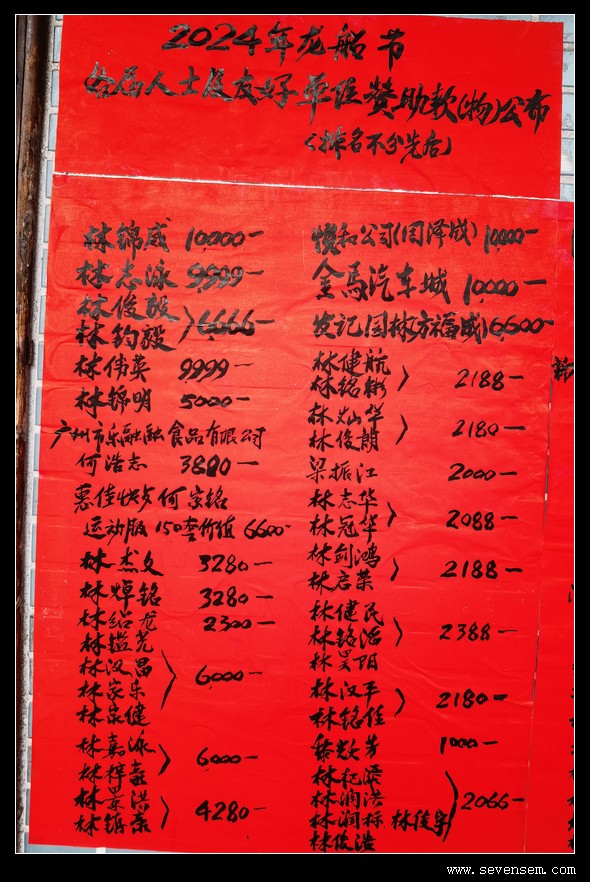 2024年龙船节
各届人士及友好单位赞助款(物)公布
(排名不分先后)
林锦威 10,000一
林志泳 9,999一
林俊毅
林钧毅 〉6,666一
林伟英 9999一
林锦明 5000一
广州市乐融融食品有限公司
何浩志 3880一
惠佳快点何宗铭
运动服150套价值 6600-
林杰文 3280一
林焯铭 3280一
林绍龙 2300一
林镒尧
林汉昌
林家乐
林家健 〉6,000一
林嘉泳
林梓豪 〉6,000一
林景洪
林镇豪 〉4280一
悦和公司(周泽成) 10,000一
金马汽车城 10,000一
发记园林(方福成) 6,600一
林健航
林铭彬 〉2188一
林灿华
林俊朗 〉2180一
梁振江 2000一
林志华
林冠华 〉2088一
林剑鸿
林启荣 〉2188一
林健民
林铭滔
林昊阳 〉2388一
林汉平
林铭佳 〉2180一
1000一
林润洪
林润标 林俊宇
林俊浩 〉2066一
www.sevensem.com